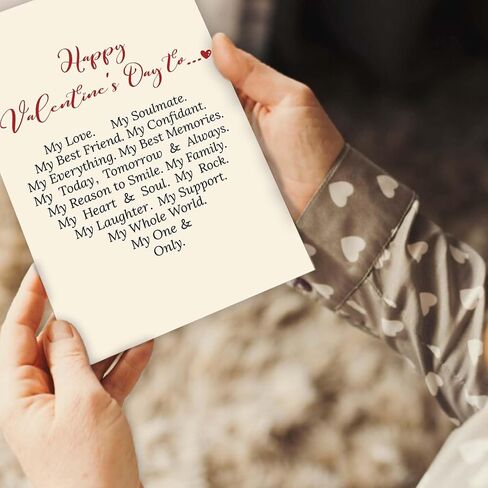 Happy
Valentine's Day to...
My Love. My Soulmate.
My Best Friend. My Confidant.
My Everything. My Best Memories.
My Today, Tomorrow & Always.
My Reason to Smile. My Family.
My Heart & Soul. My Rock.
My Laughter. My Support.
My Whole World.
My One &
Only.